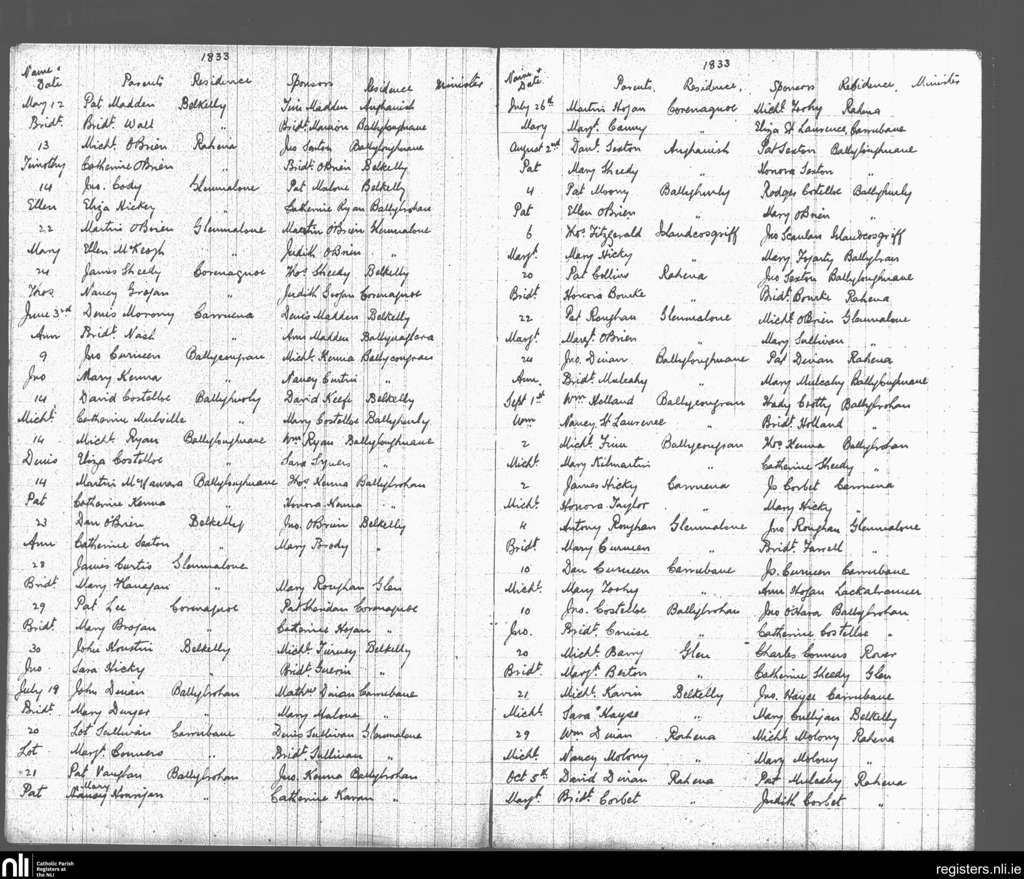 1833
Name & Date Parents Residence Sponsors Residence Minister
May 12 Pat Madden Belkelly Tim Madden Aughanish
Bridt. Bridt. Wall " Bridt. Ballyloughnane
13 Micht. O'Brien Rahena Jno Sexton Ballyloughnane
Timothy Catherine O'Brien " Bridt. O'Brien Belkelly
14 Jno. Cody Glenmalone Pat Malone Belkelly
Ellen Eliza Hickey " Catherine Ryan Ballybrohan
22 Martin O'Brien Glenmalone Martin O'Brien Glenmalone
Mary Ellen McKeogh " Judith O'Brien "
24 James Sheedy Corenagnoe Thos. Sheedy Belkelly
Thos. Nancy Grogan " Judith Grogan Corenagnoe
June 3rd Denis Morony Carruena Denis Madden Belkelly
Ann Bridt. Nash " Ann Madden
9 Jno Curneen Ballycongran Micht. Kenna Ballycongran
Jno Mary Kenna " Nancy Curtin "
14 David Costelloe Ballyhurly David Keefe Belkelly
Micht. Catherine Mulville " Mary Costelloe Ballyhurly
14 Micht. Ryan Ballyloughnane Wm Ryan Ballyloughnane
Denis Eliza Costelloe " Sara "
14 Martin McNamara Ballyloughnane Thos Kenna Ballybrohan
Pat Catherine Kenna " Honora "
23 Dan O'Brien Belkelly Jno. O'Brien Belkelly
Ann Catherine Sexton " Mary Brody "
28 James Curtis Glenmalone
Bridt. Mary Hanagan " Mary Roughan Glen
29 Pat Lee Corenagnoe Pat Sheridan Corenagnoe
Bridt. Mary Brogan " Catherine Hogan "
30 John Houstin Belkelly Micht. Turney Belkelly
Jno. Sara Hicky " Bridt. Guerin "
July 19 John Dinan Ballybrohan Mathw Dinan Carnubane
Bridt. Mary Dwyer " Mary Malone "
20 Lot Sullivan Carnubane Denis Sullivan Glenmalone
Lot Margt. Connors " Bridt. Sullivan "
21 Pat Vaughan Ballybrohan Jno. Kenna Ballybrohan
Pat Mary Nancy Hourigan " Catherine Kavan "
1833
Name & Date Parents, Residence, Sponsors Residence, Minister
July 26th Martin Hogan Corenagnoe Micht. Toohy Rahena
Mary Margt. Canny " Eliza St Laurence, Carnubane
August 2nd Danl. Sexton Aughanish Pat Sexton Ballyloughnane
Pat Mary Sheedy " Honora Sexton "
4 Pat Moony Ballyhurly Rodger Costelloe Ballyhurly
Pat Ellen O'Brien " Mary O'Brien "
6 Thos. Fitzgerald Islandcosgriff Jno Scanlan Islandcosgriff
Margt. Mary Hicky " Mary Fogarty
20 Pat Collins Rahena Jno Sexton Ballyloughnane
Bridt. Honora Bourke " Bridt. Bourke Rahena
22 Pat Roughan Glenmalone Micht. O'Brien Glenmalone
Margt. Margt. O'Brien " Mary Sullivan "
24 Jno. Dinan Ballyloughnane Pat Dinan Rahena
Ann. Bridt. Mulcahy " Mary Mulcahy Ballyloughnane
Sept 1st Wm Holland Ballycongran Hady Crotty Ballybrohan
Wm Nancy St Laurence " Bridt. Holland "
2 Micht. Finn Ballycongran Thos Kenna Ballybrohan
Micht. Mary Kilmartin " Catherine Sheedy "
2 James Hicky Carruena Js Corbet Carruena
Micht. Honora Taylor " Mary Hicky "
4 Antony Roughan Glenmalone Jno Roughan Glenmalone
Bridt. Mary Curneen " Bridt. Farrell "
10 Dan Curneen Carnubane Js. Curneen Carnubane
Micht. Mary Toohy " Ann Hogan
10 Jno. Costelloe Ballybrohan Jno O'Hara Ballybrohan
Jno. Bridt. Cruise " Catherine Costelloe "
20 Micht. Barry Glen Charles Conners Rover
Bridt. Margt. Bexton " Catherine Sheedy Glen
21 Micht. Kavin Belkelly Jno. Hayse Carnubane
Micht. Sara Hayse " Mary Culligan Belkelly
29 Wm Dinan Rahena Micht. Molony Rahena
Micht. Nancy Molony " Mary Molony "
Oct 5th David Dinan Rahena Pat Mulcahy Rahena
Margt. Bridt. Corbet " Judith Corbet "
nli Catholic Parish Registers at the NLI
registers.nli.ie